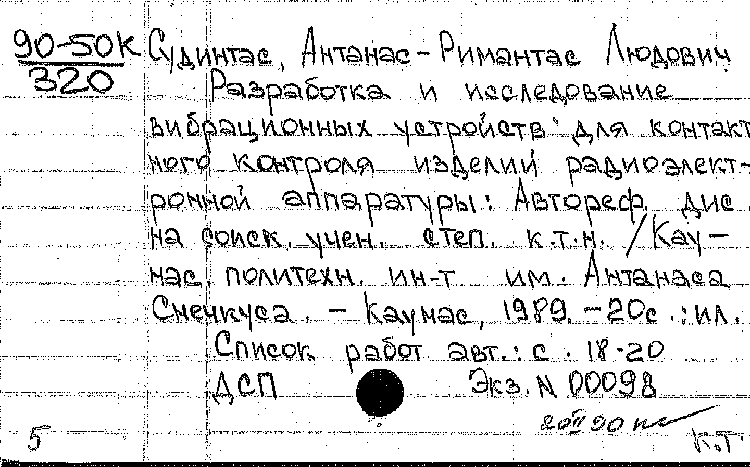 90-50К
320
Судинтас, Антанас-Римантас Людович
Разработка и исследование
вибрационных устройств для контакт
ного контроля изделий радиоэлект-
ронной аппаратуры: Автореф. дис.
на соиск. учен. степ. к.т.н. / Кау-
нас. политехн. ин-т им. Антанаса
Снечкуса. – Каунас, 1989. – 20с.: ил.
Список работ авт.: с. 18-20
ДСП Экз. N 00098
5 К.Т